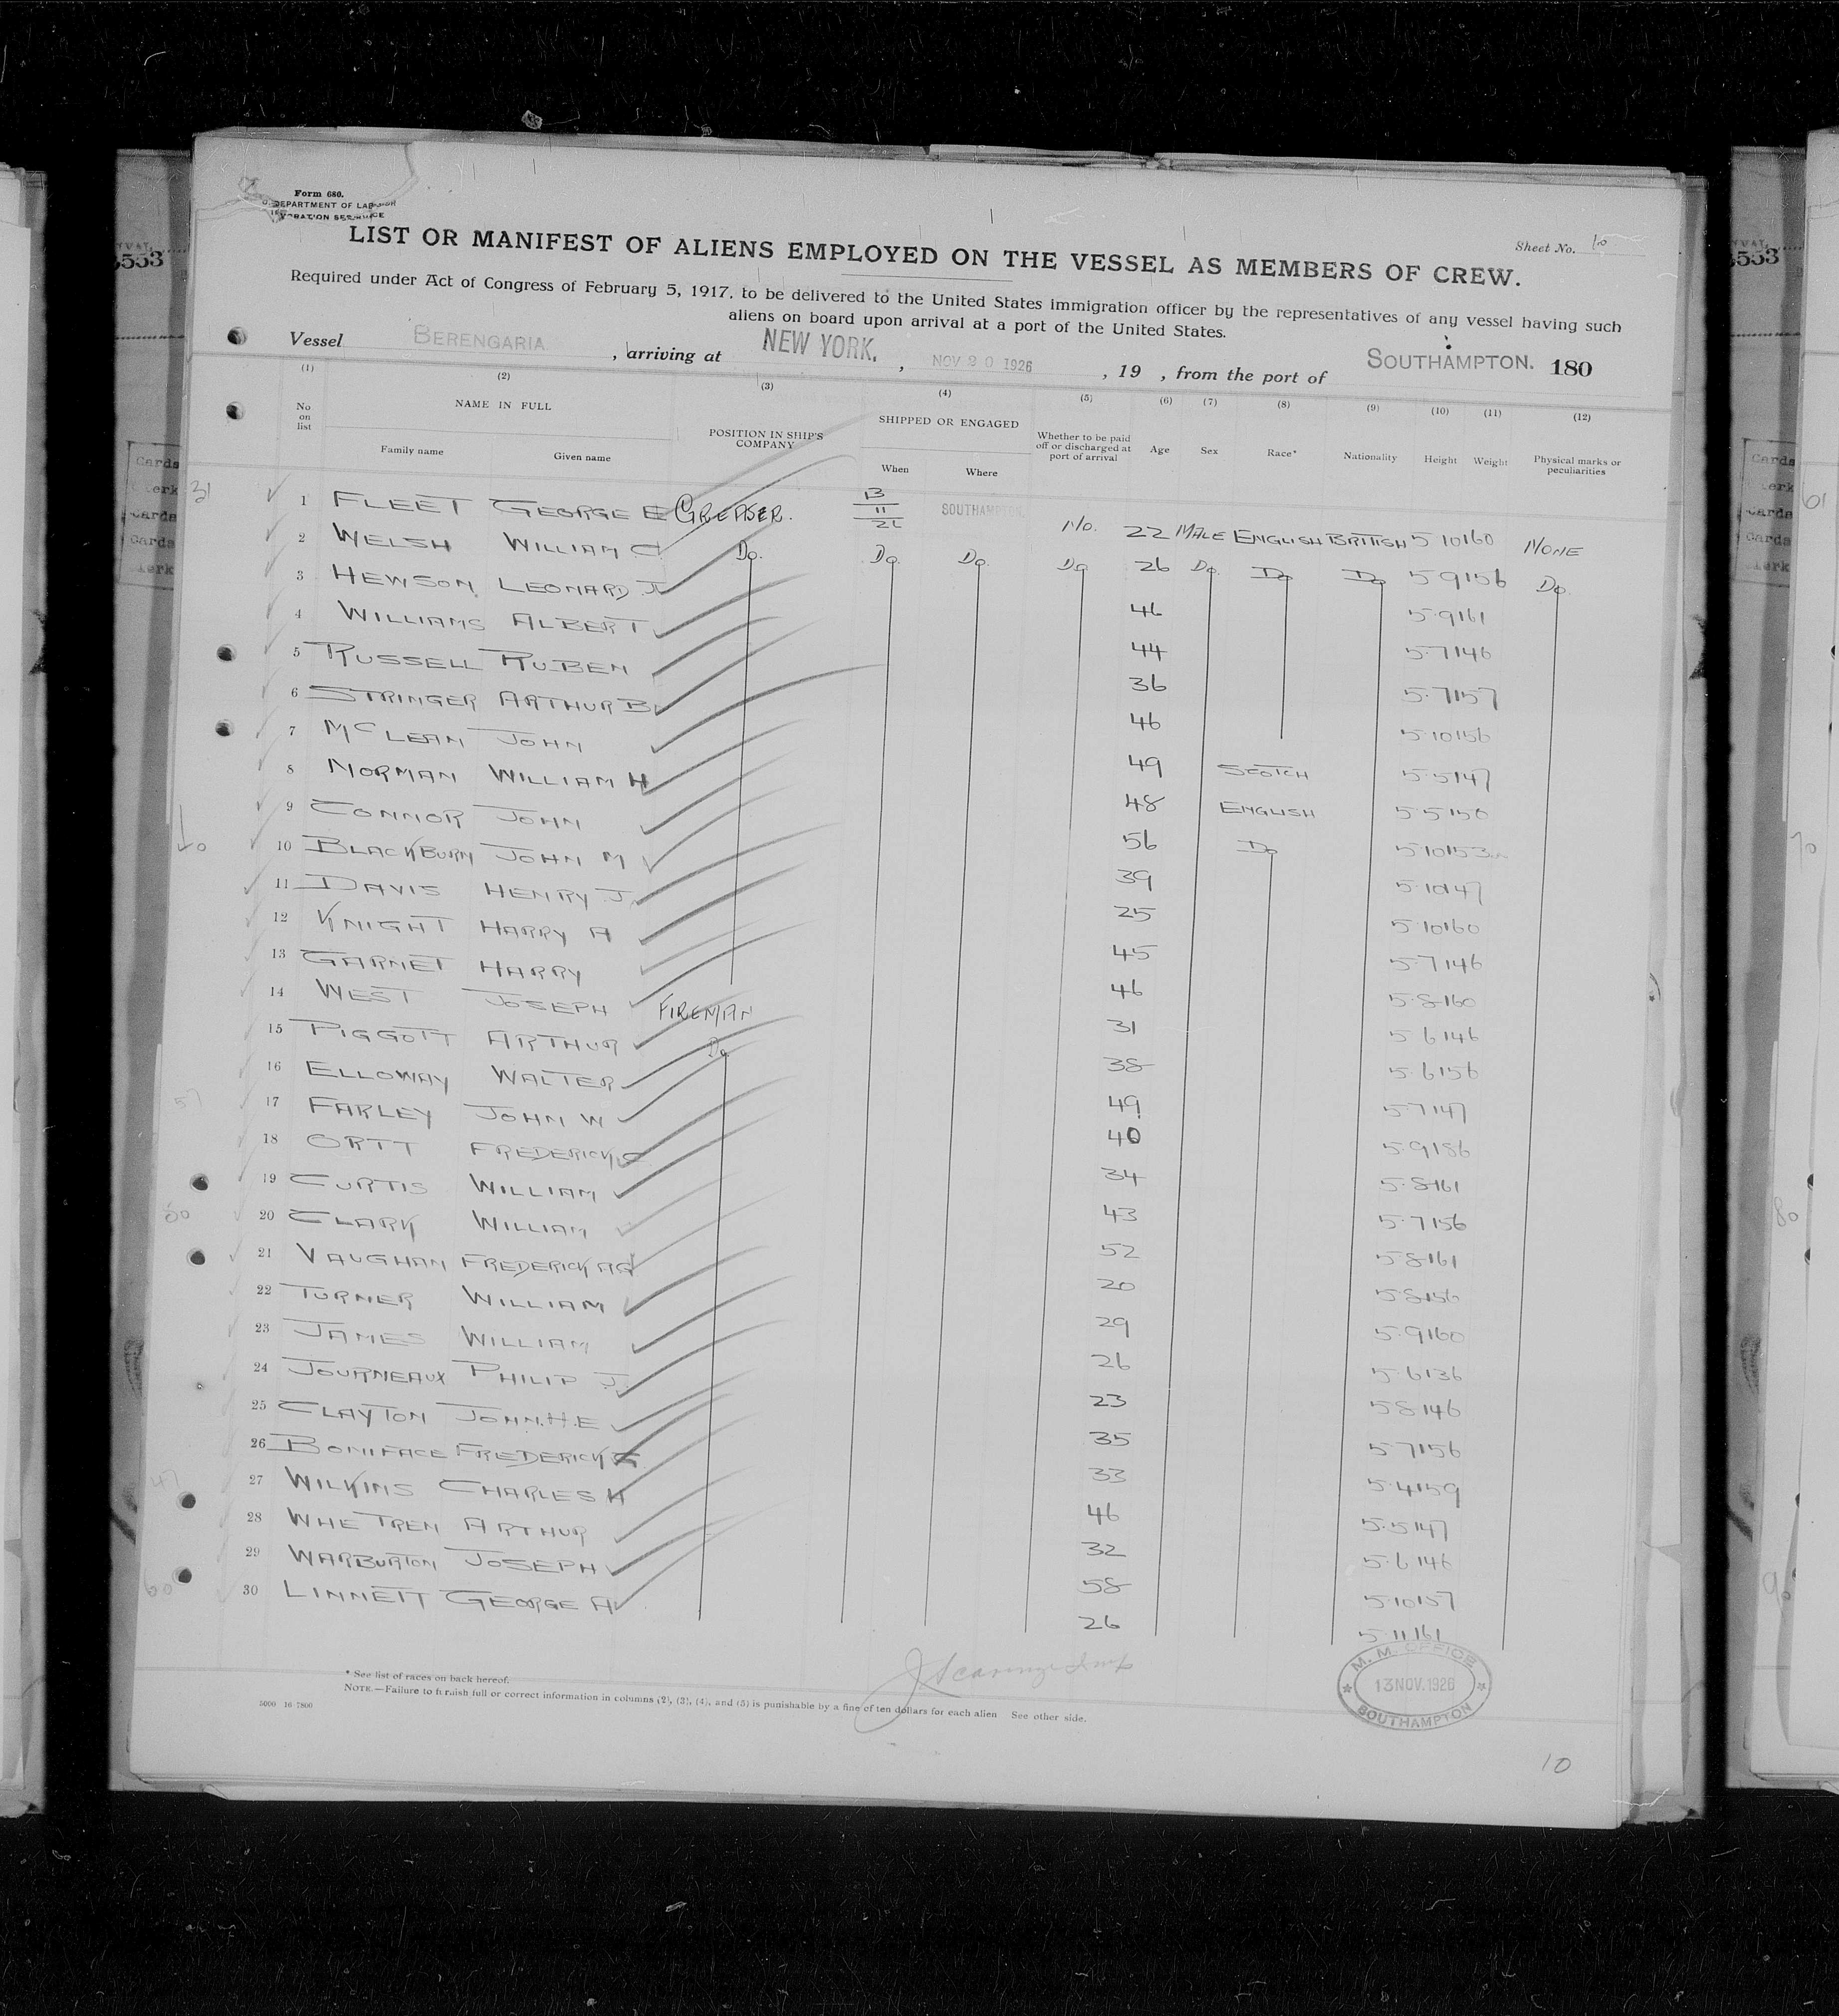 Form 680.
DEPARTMENT OF LABOR
Sheet No. 10
LIST OR MANIFEST OF ALIENS EMPLOYED ON THE VESSEL AS MEMBERS OF CREW.
Required under Act of Congress of February 5, 1917, to be delivered to the United States immigration officer by the representatives of any vessel having such
aliens on board upon arrival at a port of the United States.
Vessel BERENGARIA, arriving at NEW YORK, NOV 20 1926, 19 , from the port of SOUTHAMPTON. 180
(1) (2) (3) (4) (5) (6) (7) (8) (9) (10) (11) (12)
No on list NAME IN FULL Family name Given name POSITION IN SHIP'S COMPANY SHIPPED OR ENGAGED When Where Whether to be paid off or discharged at port of arrival Age Sex Race* Nationality Height Weight Physical marks or peculiarities
1 FLEET GEORGE E GREASER. 13/11/26 SOUTHAMPTON No. 22 MALE ENGLISH BRITISH 5 10 160 NONE
2 WELSH WILLIAM C Do. Do. Do. Do 26 Do. Do Do 5 9 156 Do.
3 HEWSON LEONARD J 46 5 9 161
4 WILLIAMS ALBERT 44 5 7 146
5 RUSSELL RUBEN 36 5 7 157
6 STRINGER ARTHUR B 46 5 10 156
7 McLEAN JOHN 49 SCOTCH 5 5 147
8 NORMAN WILLIAM H 48 ENGLISH 5 5 150
9 CONNOR JOHN 56 Do 5 10 153
10 BLACKBURN JOHN M 39 5 10 147
11 DAVIS HENRY J. 25 5 10 160
12 KNIGHT HARRY A 45 5 7 146
13 GARNET HARRY 46 5 8 160
14 WEST JOSEPH FIREMAN 31 5 6 146
15 PIGGOTT ARTHUR Do 38 5 6 156
16 ELLOWAY WALTER 49 5 7 147
17 FARLEY JOHN W 40 5 9 186
18 ORTT FREDERICK C 34 5 8 161
19 CURTIS WILLIAM 43 5 7 156
20 CLARK WILLIAM 52 5 8 161
21 VAUGHAN FREDERICK AG 20 5 8 156
22 TURNER WILLIAM 29 5 9 160
23 JAMES WILLIAM 26 5 6 136
24 JOURNEAUX PHILIP J. 23 5 8 146
25 CLAYTON JOHN.H.E 35 5 7 156
26 BONIFACE FREDERICK G 33 5 4 159
27 WILKINS CHARLES H 46 5 5 147
28 WHETREN ARTHUR 32 5 6 146
29 WARBURTON JOSEPH 58 5 10 157
30 LINNETT GEORGE A 26 5 11 161
* See list of races on back hereof.
NOTE.—Failure to furnish full or correct information in columns (2), (3), (4), and (5) is punishable by a fine of ten dollars for each alien See other side.
5000 16 7800
M. M. OFFICE
13 NOV. 1926
SOUTHAMPTON
10